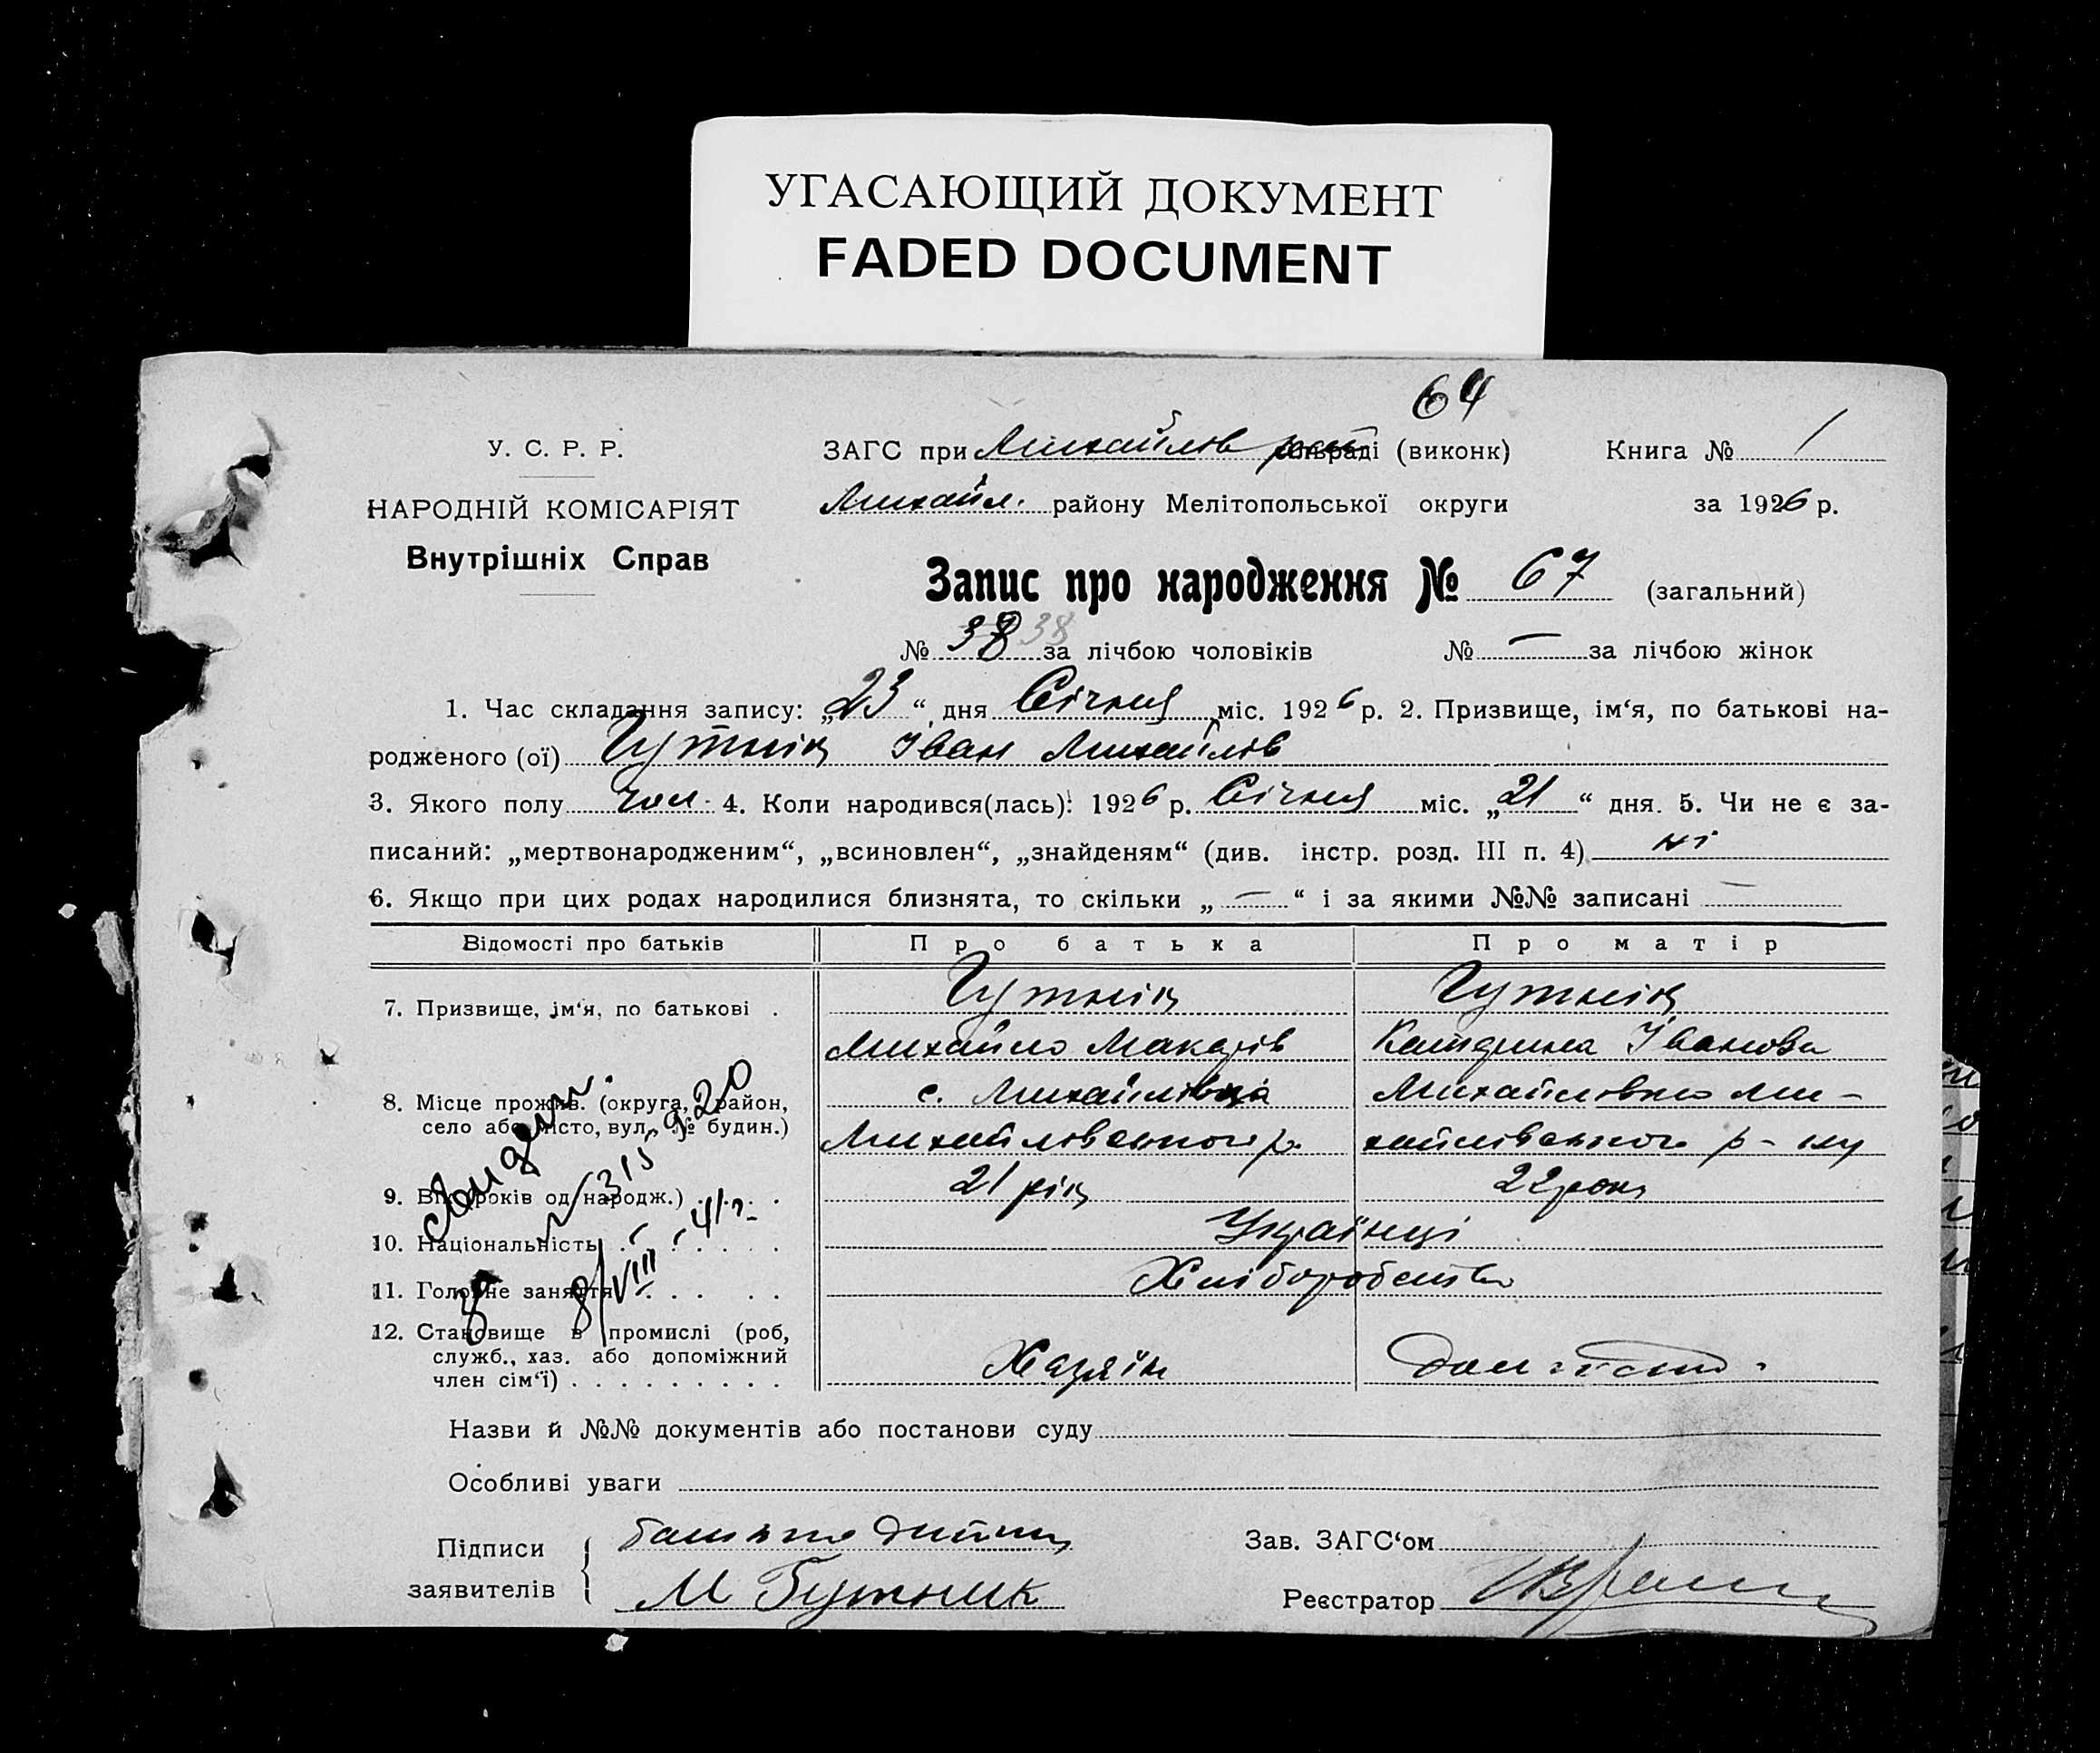 УГАСАЮЩИЙ ДОКУМЕНТ
FADED DOCUMENT
64
У. С. Р. Р.
НАРОДНІЙ КОМІСАРІЯТ
Внутрішніх Справ
ЗАГС при Михайлів раді (виконк) Книга № 1
Михайл. району Мелітопольської округи за 1926 р.
Запис про народження № 67 (загальний)
№ 38 38 за лічбою чоловіків № — за лічбою жінок
1. Час складання запису: „23“ дня Січня міс. 1926 р. 2. Призвище, ім‘я, по батькові на-
родженого (ої) Гутнік Іван Михайлів
3. Якого полу чол. 4. Коли народився(лась): 1926 р. Січня міс. „21“ дня. 5. Чи не є за-
писаний: „мертвонародженим“, „всиновлен“, „знайденям“ (див. інстр. розд. III п. 4) ні
6. Якщо при цих родах народилися близнята, то скільки „—“ і за якими №№ записані —
Відомості про батьків Про батька Про матір
7. Призвище, ім‘я, по батькові . Гутнік Гутнік
Михайло Макарів Катерина Іванова
8. Місце прожив. (округа, район, с. Михайлівка Михайловка Ми-
село або місто, вул. № будин.) Михайлівського р. хайлівського р-ну
9. Вік (років од народж.) . . . . 21 рік 22 роки
10. Національність . . . . . . Українці
11. Головне заняття . . . . . Хліборобство
12. Становище в промислі (роб,
служб., хаз. або допоміжний
член сім‘ї) . . . . . . . . . Хазяїн
№ 315920
8/VIII-41 г.
Назви й №№ документів або постанови суду
Особливі уваги
Підписи батько дитини Зав. ЗАГС‘ом
заявителів М Гутник Реєстратор